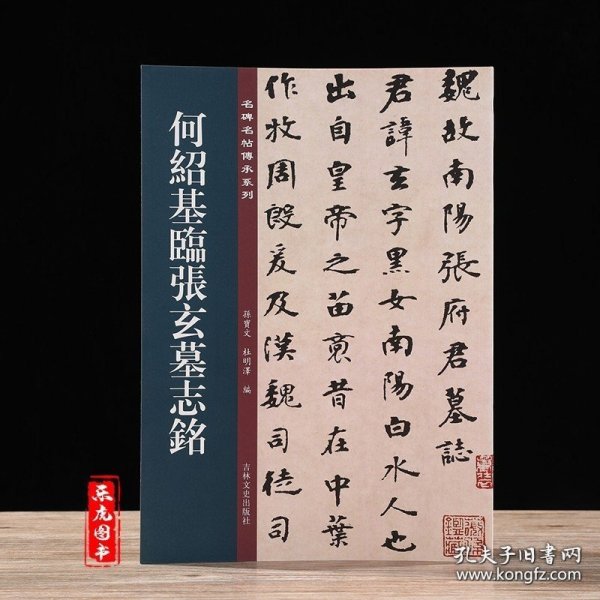 何紹基臨張玄墓志銘
名碑名帖傳承系列
孫寶文 杜明澤 編
吉林文史出版社
魏故南陽張府君墓誌
君諱玄字黑女南陽白水人也
出自皇帝之苗裔昔在中葉
作牧周殷爰及漢魏司徒司
乐虎图书
孔夫子旧书网
www.kongfz.com